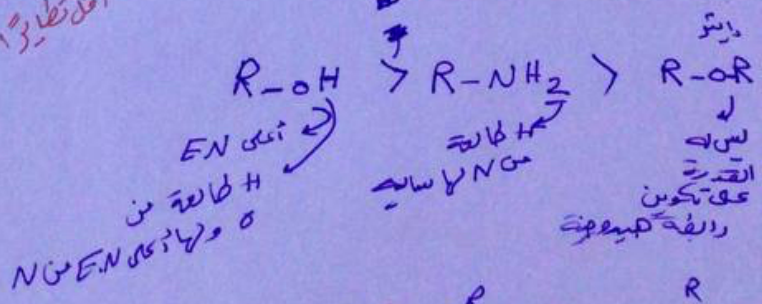 أقل تطايرًا
R-OH > R-NH2 > R-O-R
أعلى EN
H طالعة من
O ولها أعلى E.N من N
H طالعة
من N لها سالبه
إيثر
ليس له
القدرة
على تكوين
رابطة هيدروجينية
R R